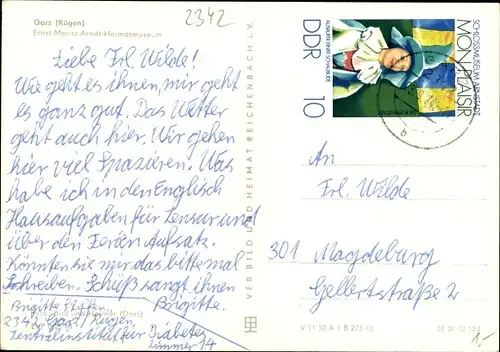 Garz (Rügen)
Ernst-Moritz-Arndt-Heimatmuseum
2342
Liebe Frl. Wilde!
Wie geht es ihnen, mir geht
es ganz gut. Das Wetter
geht auch hier. Wir gehen
hier viel Spazieren. Was
habe ich in den Englisch
Hausaufgaben für Zensur und
über den Ferien Aufsatz.
Könnten sie mir das bitte mal
Schreiben. Schüß sangt ihnen
Brigitte
2342 Garz / Rügen
Zentralinstitut für Diabetes
Zimmer 14
VEB BILD UND HEIMAT REICHENBACH i. V.
SCHLOSSMUSEUM ARNSTADT
MON PLAISIR
DDR 10
An
Frl. Wilde
301 Magdeburg
Gellertstraße 2
V 11 50 A 1 B 273/73
01 01 12 123